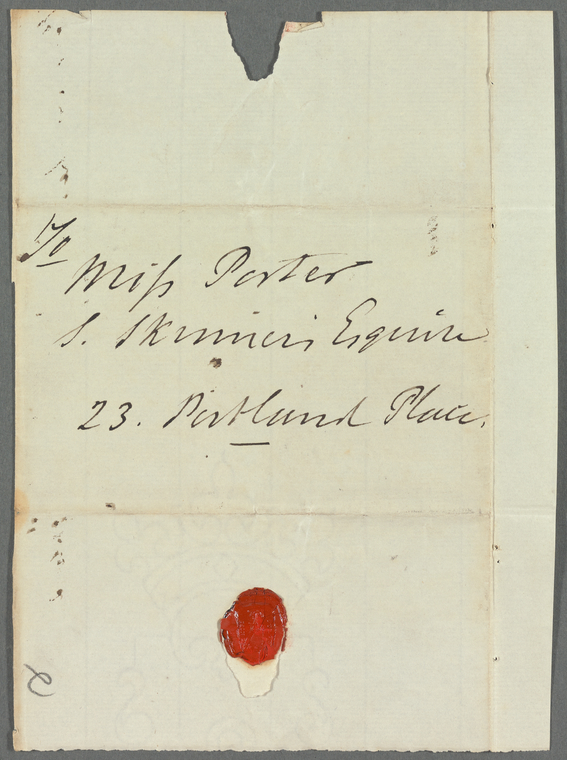 To
Miſs Porter
S. Skinner's Esquire
23. Portland Place.